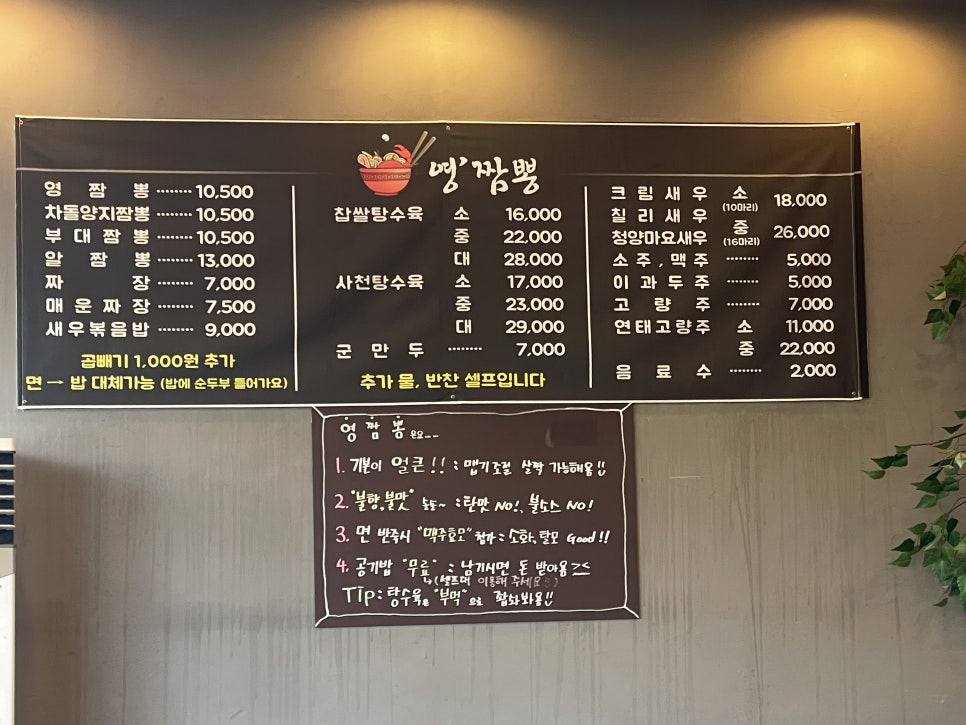 영짬뽕
영 짬 뽕 ········ 10,500
차돌양지짬뽕 ········ 10,500
부 대 짬 뽕 ········ 10,500
알 짬 뽕 ········ 13,000
짜 장 ········ 7,000
매 운 짜 장 ········ 7,500
새우볶음밥 ········ 9,000
곱빼기 1,000원 추가
면 → 밥 대체가능 (밥에 순두부 들어가요)
찹쌀탕수육 소 16,000
중 22,000
대 28,000
사천탕수육 소 17,000
중 23,000
대 29,000
군 만 두 ········ 7,000
추가 물, 반찬 셀프입니다
크 림 새 우 소 (10마리) 18,000
칠 리 새 우
청양마요새우 중 (16마리) 26,000
소 주 , 맥 주 ········ 5,000
이 과 두 주 ········ 5,000
고 량 주 ········ 7,000
연태고량주 소 11,000
중 22,000
음 료 수 ········ 2,000
영 짬 뽕 은요~~
1. 기분이 얼큰!! : 맵기조절 살짝 가능해욤!!
2. "불향,불맛" 농도~ : 탄맛 NO!, 불소스 NO!
3. 면 반죽시 "맥주효모" 첨가 : 소화, 탈모 Good!!
4. 공기밥 "무료" : 남기시면 돈 받아욤 ㅋㅅ
↳(셀프대 이용해 주세요)
Tip : 탕수육은 "부먹"으로 봐용!!